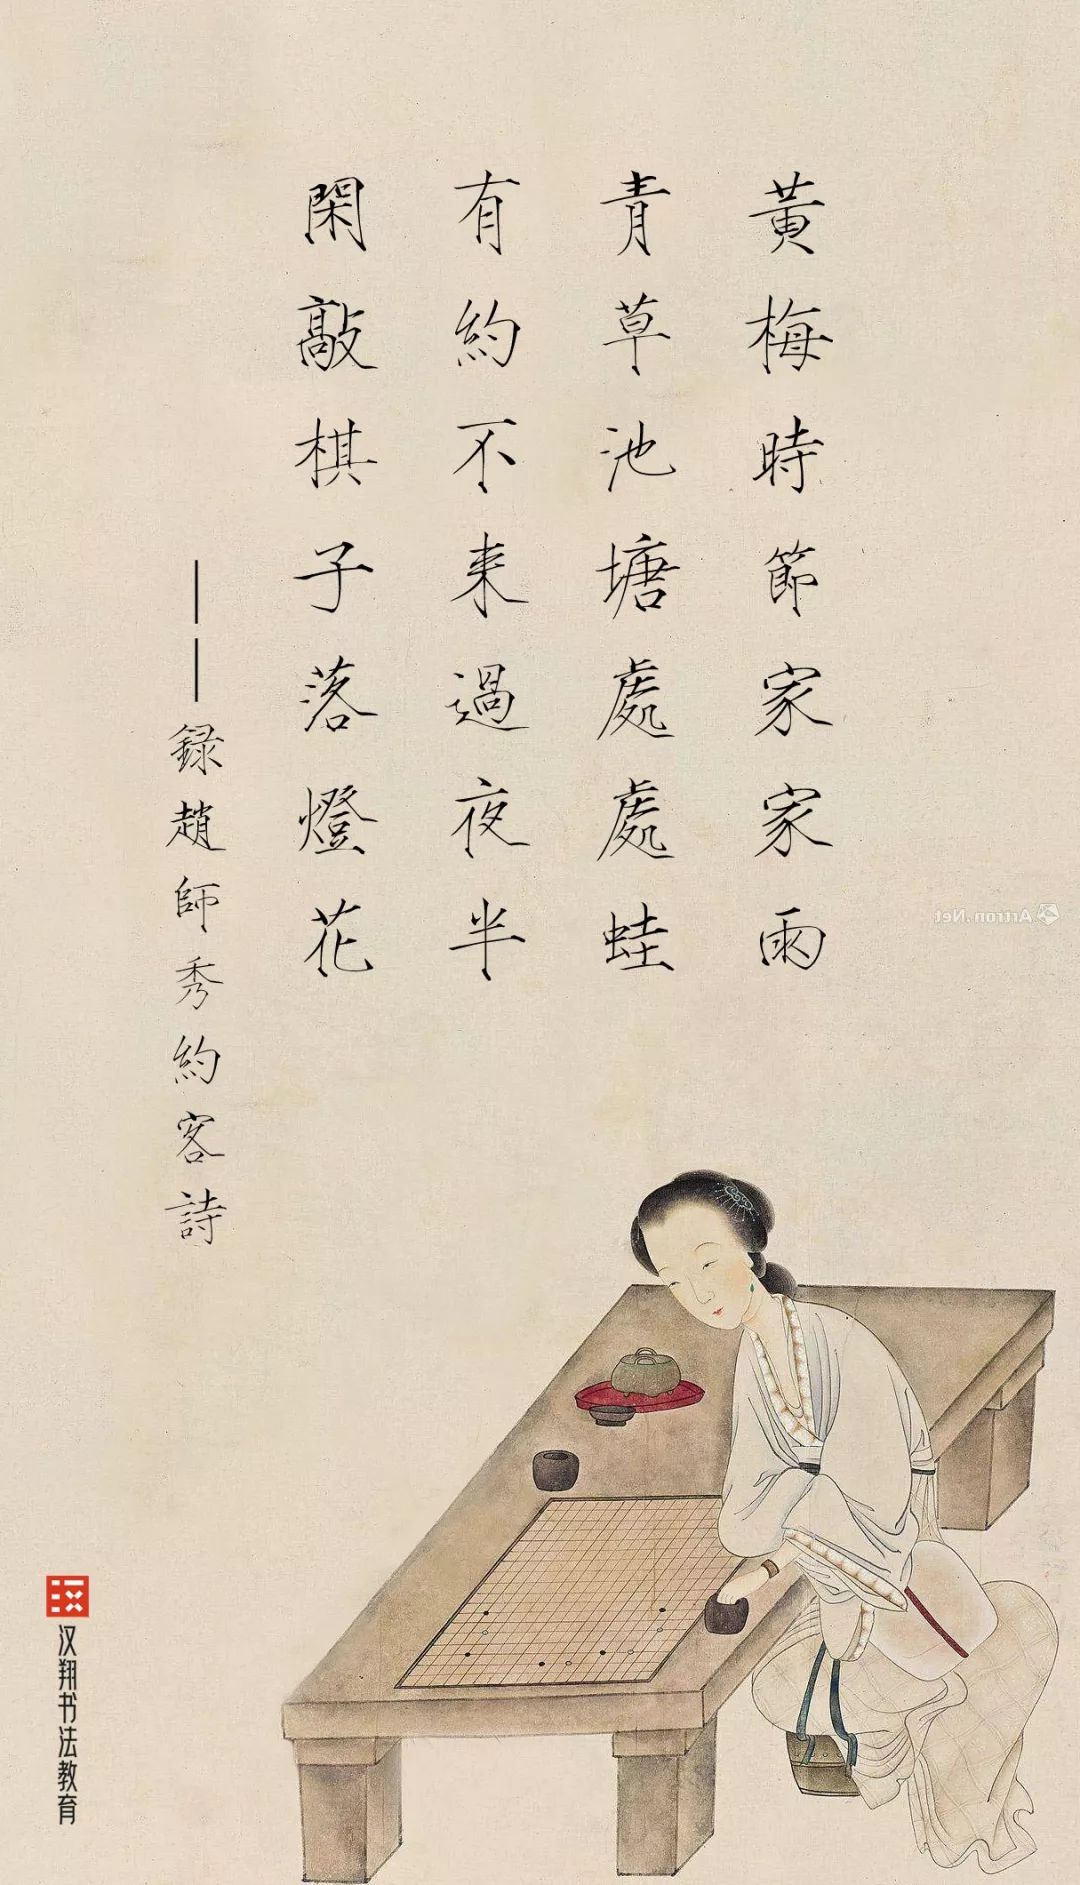 黃梅時節家家雨
青草池塘處處蛙
有約不来過夜半
閑敲棋子落燈花
——録趙師秀約客詩
Artron.Net
汉翔书法教育